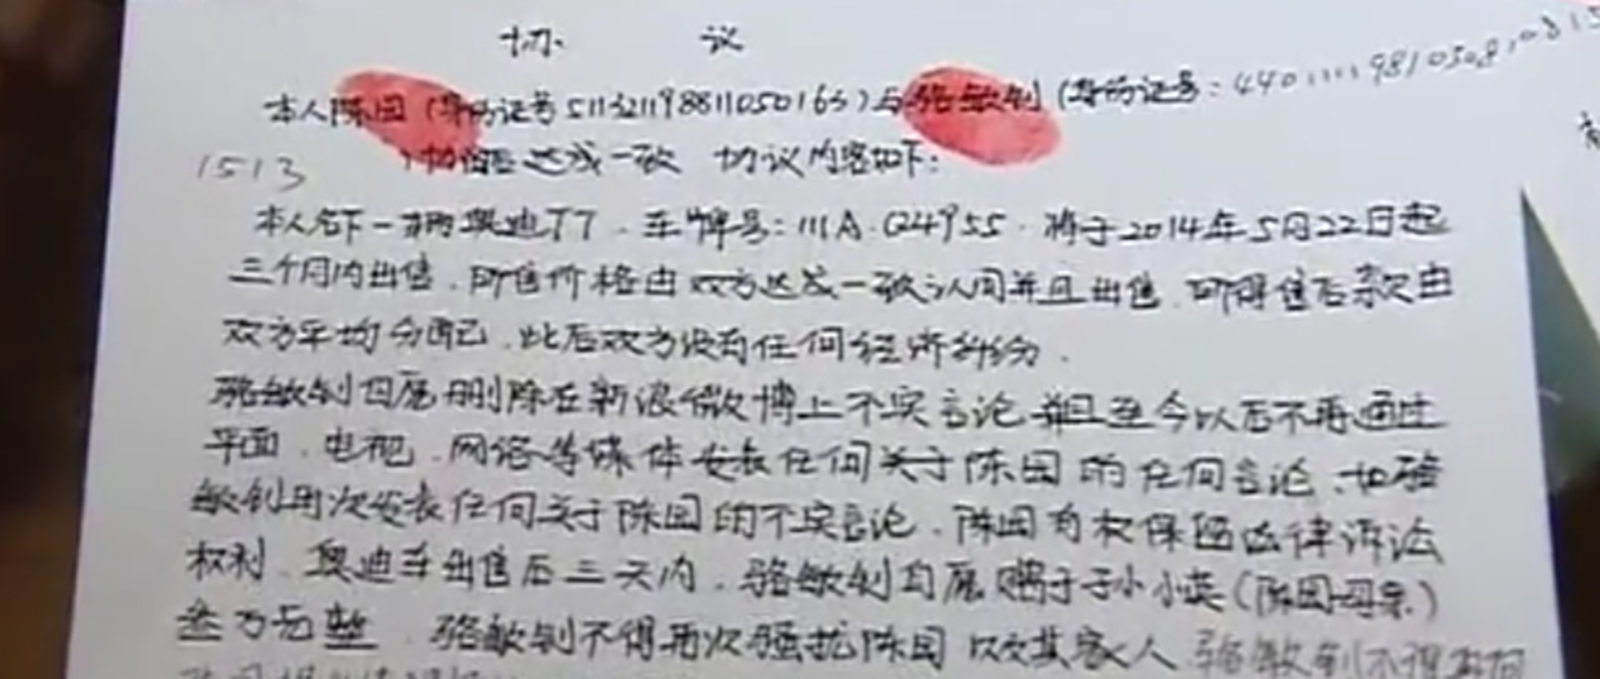 协 议
本人陈园(身份证号511321198811050163)与骆敏钊(身份证号:
1513 )协商后达成一致 协议内容如下:
本人名下一辆奥迪TT.车牌号:川A.Q4955.将于2014年5月22日起
三个月内出售.所售价格由双方达成一致认同并且出售.所得售后款由
双方平均分配.此后双方没有任何经济纠纷.
骆敏钊自愿删除在新浪微博上不实言论并且至今以后不再通过
平面.电视.网络等媒体发表任何关于陈园的任何言论.如骆
敏钊再次发表任何关于陈园的不实言论.陈园有权保留法律诉讼
权利.奥迪车出售后三天内.骆敏钊自愿赠于孙小英(陈园母亲)
叁万元整.骆敏钊不得再次骚扰陈园以及其家人